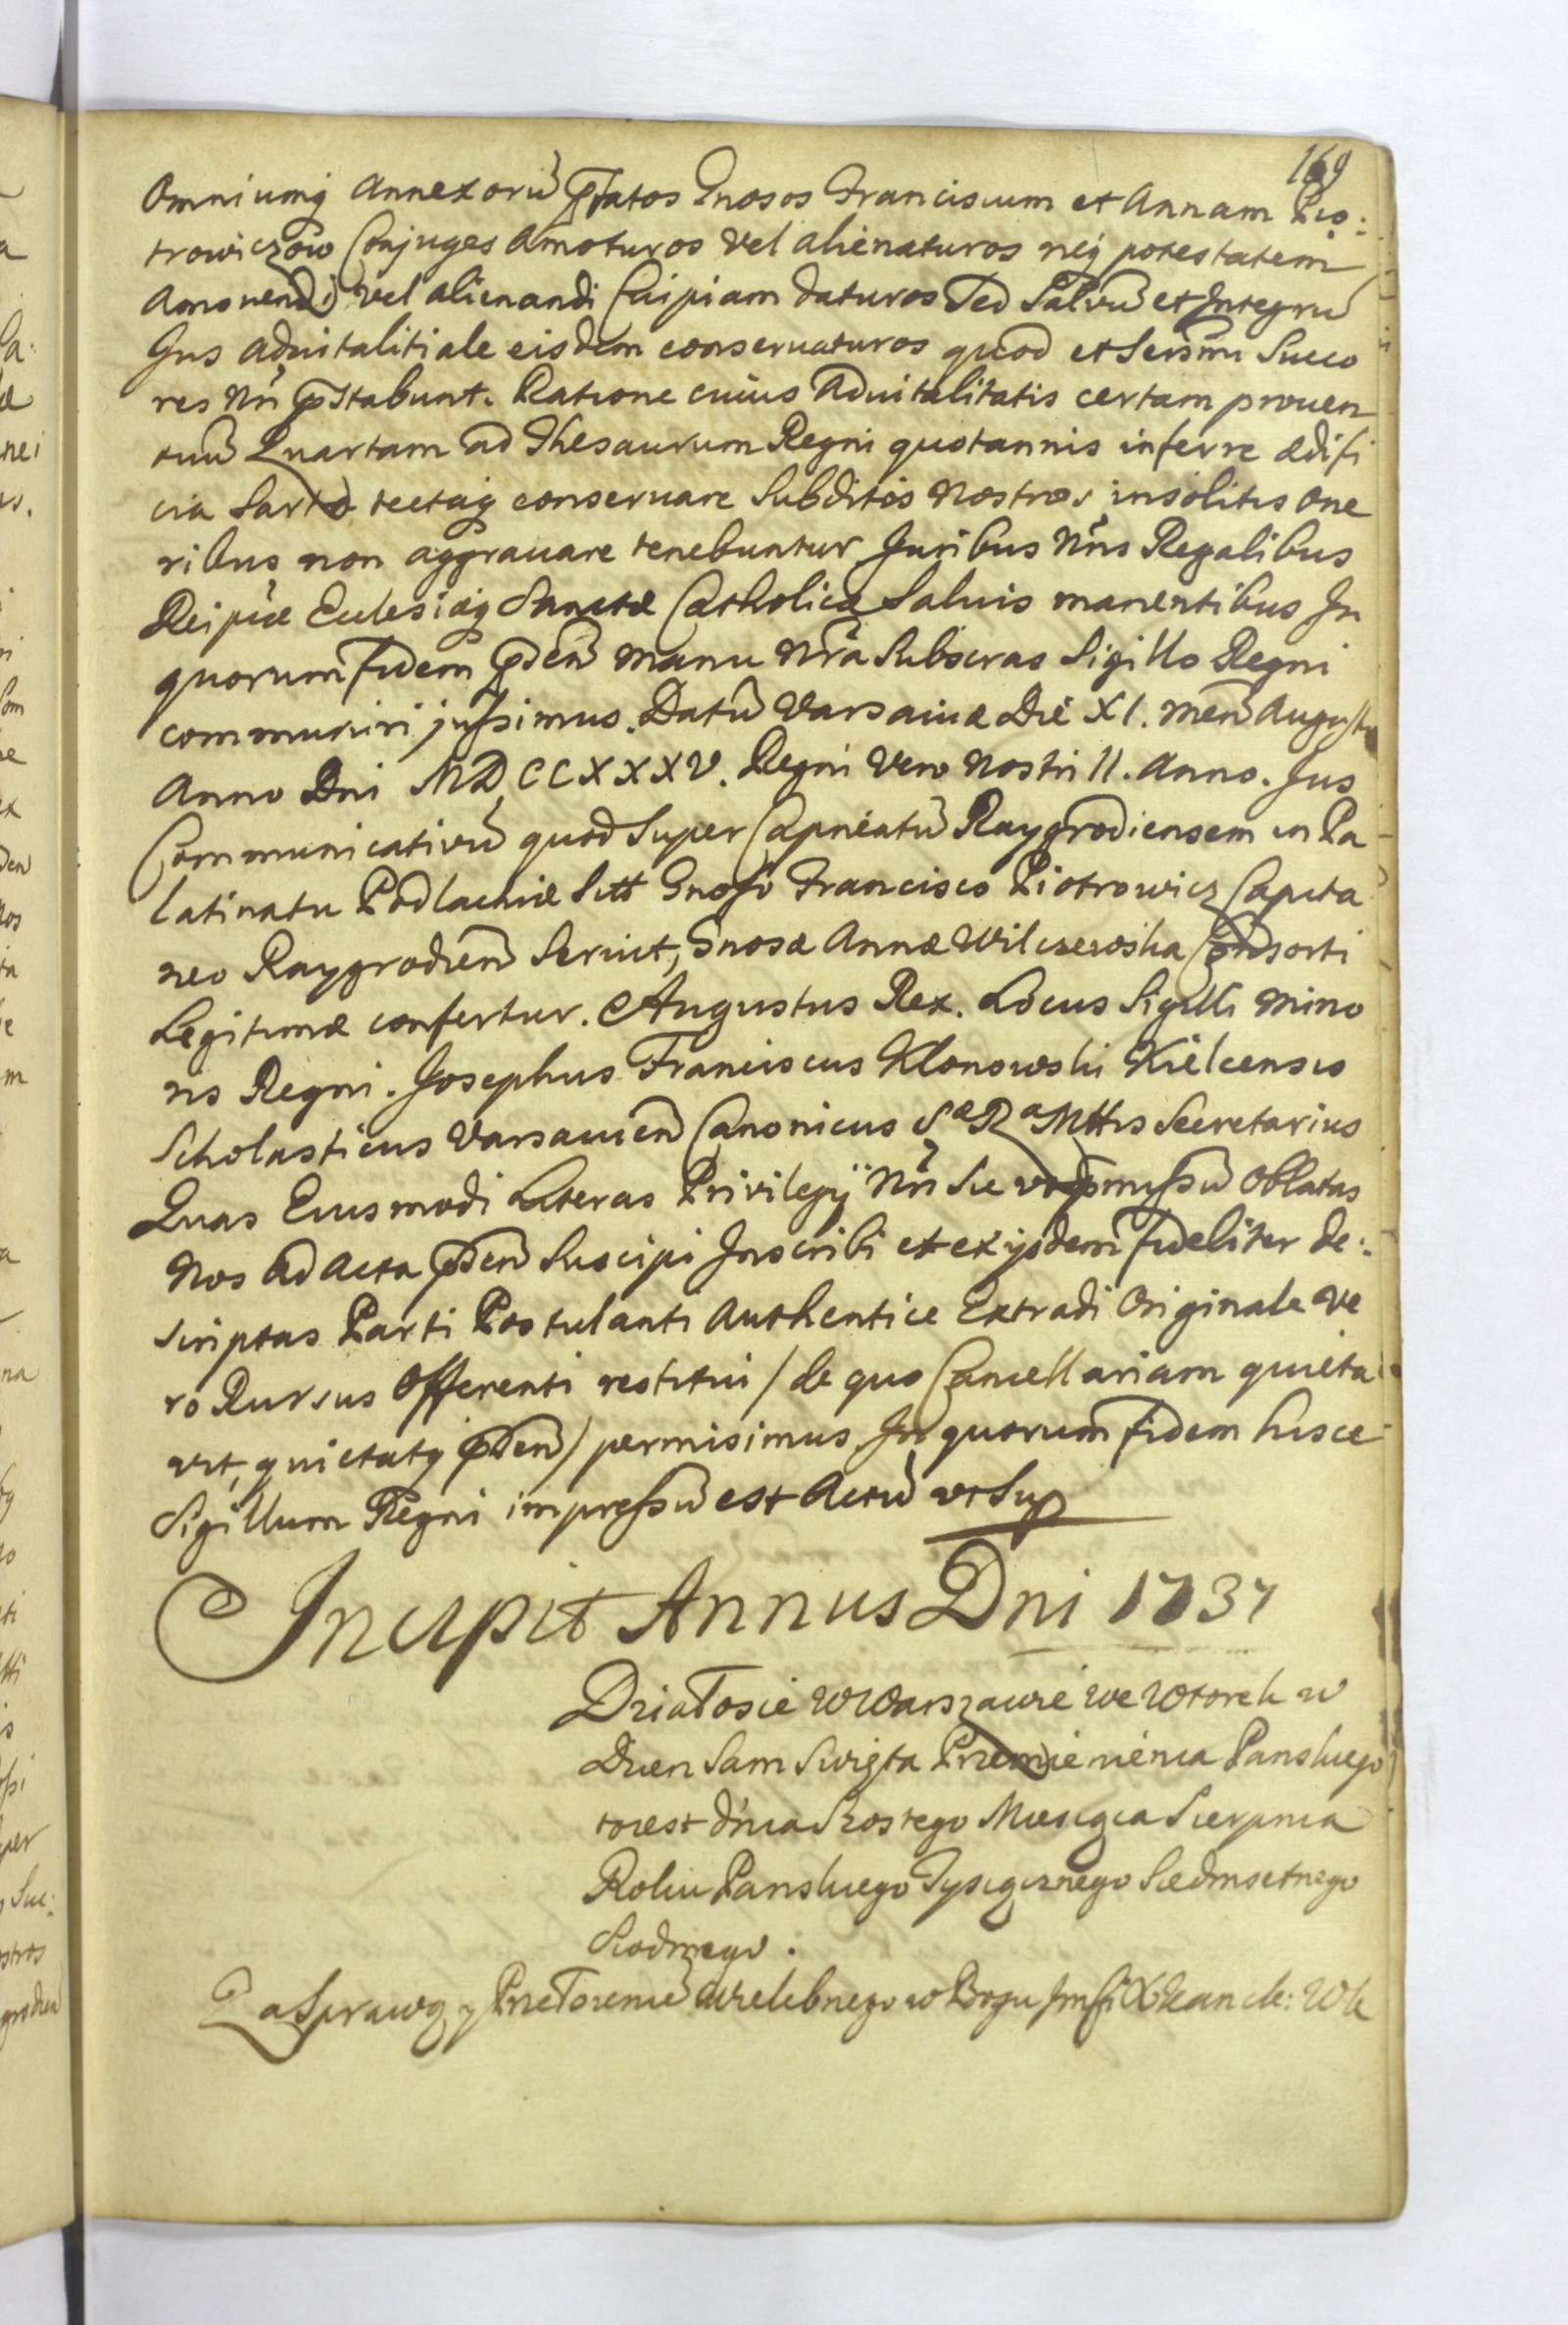 169
Omniumq Annexorũ ꝑfatos Gnosos Franciscum et Annam Pio:
trowiczow Conjuges Amoturos vel alienaturos neq potestatem
Amovendi vel alienandi Cuipiam daturos Sed Salvũ et Integrũ
Jus advitalitiale eisdem conservaturos quod et Serãmi Succo
res Nri p̃stabunt. Ratione cuius Advitalitatis certam proven
tuũ Quartam ad Thesaurum Regni quotannis inferre ædifi
cia Sarta tectaq conservare Subditos Nostros insolitis one
ribus non aggravare tenebuntur Juribus Nr̃is Regalibus
Reipcæ Eclesiæq Sanctæ Catholicæ Salvis manentibus In
quorum fidem p̃sen̄ manu Nr̃a Subscras Sigillo Regni
communiri jussimus. Datũ Varsaviæ Die XI. men̄ Augusti
Anno Dni MDCCXXXV. Regni Vero Nostri II. Anno. Jus
Communicativũ quod Super Capneatũ Raygrodiensem in Pa
latinatu Podlachiæ Sitt Gnoso Francisco Piotrowicz Capita
neo Raygrodien̄ Serivit, Gnosæ Annæ Wilczewska Consorti
Legitimæ confertur. Augustus Rex. Locus Sigilli Mino
ris Regni. Josephus Franciscus Klonowski Kielcensis
Scholasticus Varsavien̄ Canonicus Sæ Ræ Mttis Secretarius
Quas Eiusmodi Literas Privilegÿ Nri Sic ut p̃missũ Oblatas
Nos ad Acta p̃sen̄ Suscipi Inscribi et ex ijsdem fideliter de:
scriptas Parti Postulanti Authentice Extradi Originale ve
ro Rursus Offerenti restitui / de quo Cancellariam quieta
vit, quietatq p̃sen̄ / permisimus In quorum fidem hisce
Sigillum Regni impressũ est Actũ ut Sup
Incipit Annus Dni 1737
Działosie w Warszawie we Wtorek w
Dzien Sam Swięta Przemienienia Panskiego
toiest dnia Szostego Miesiąca Sierpnia
Roku Panskiego Tysiącznego Siedmsetnego
Siodmego.
Za Sprawą y Przełozenie Wielebnego w Bogu X Kancle: Wk